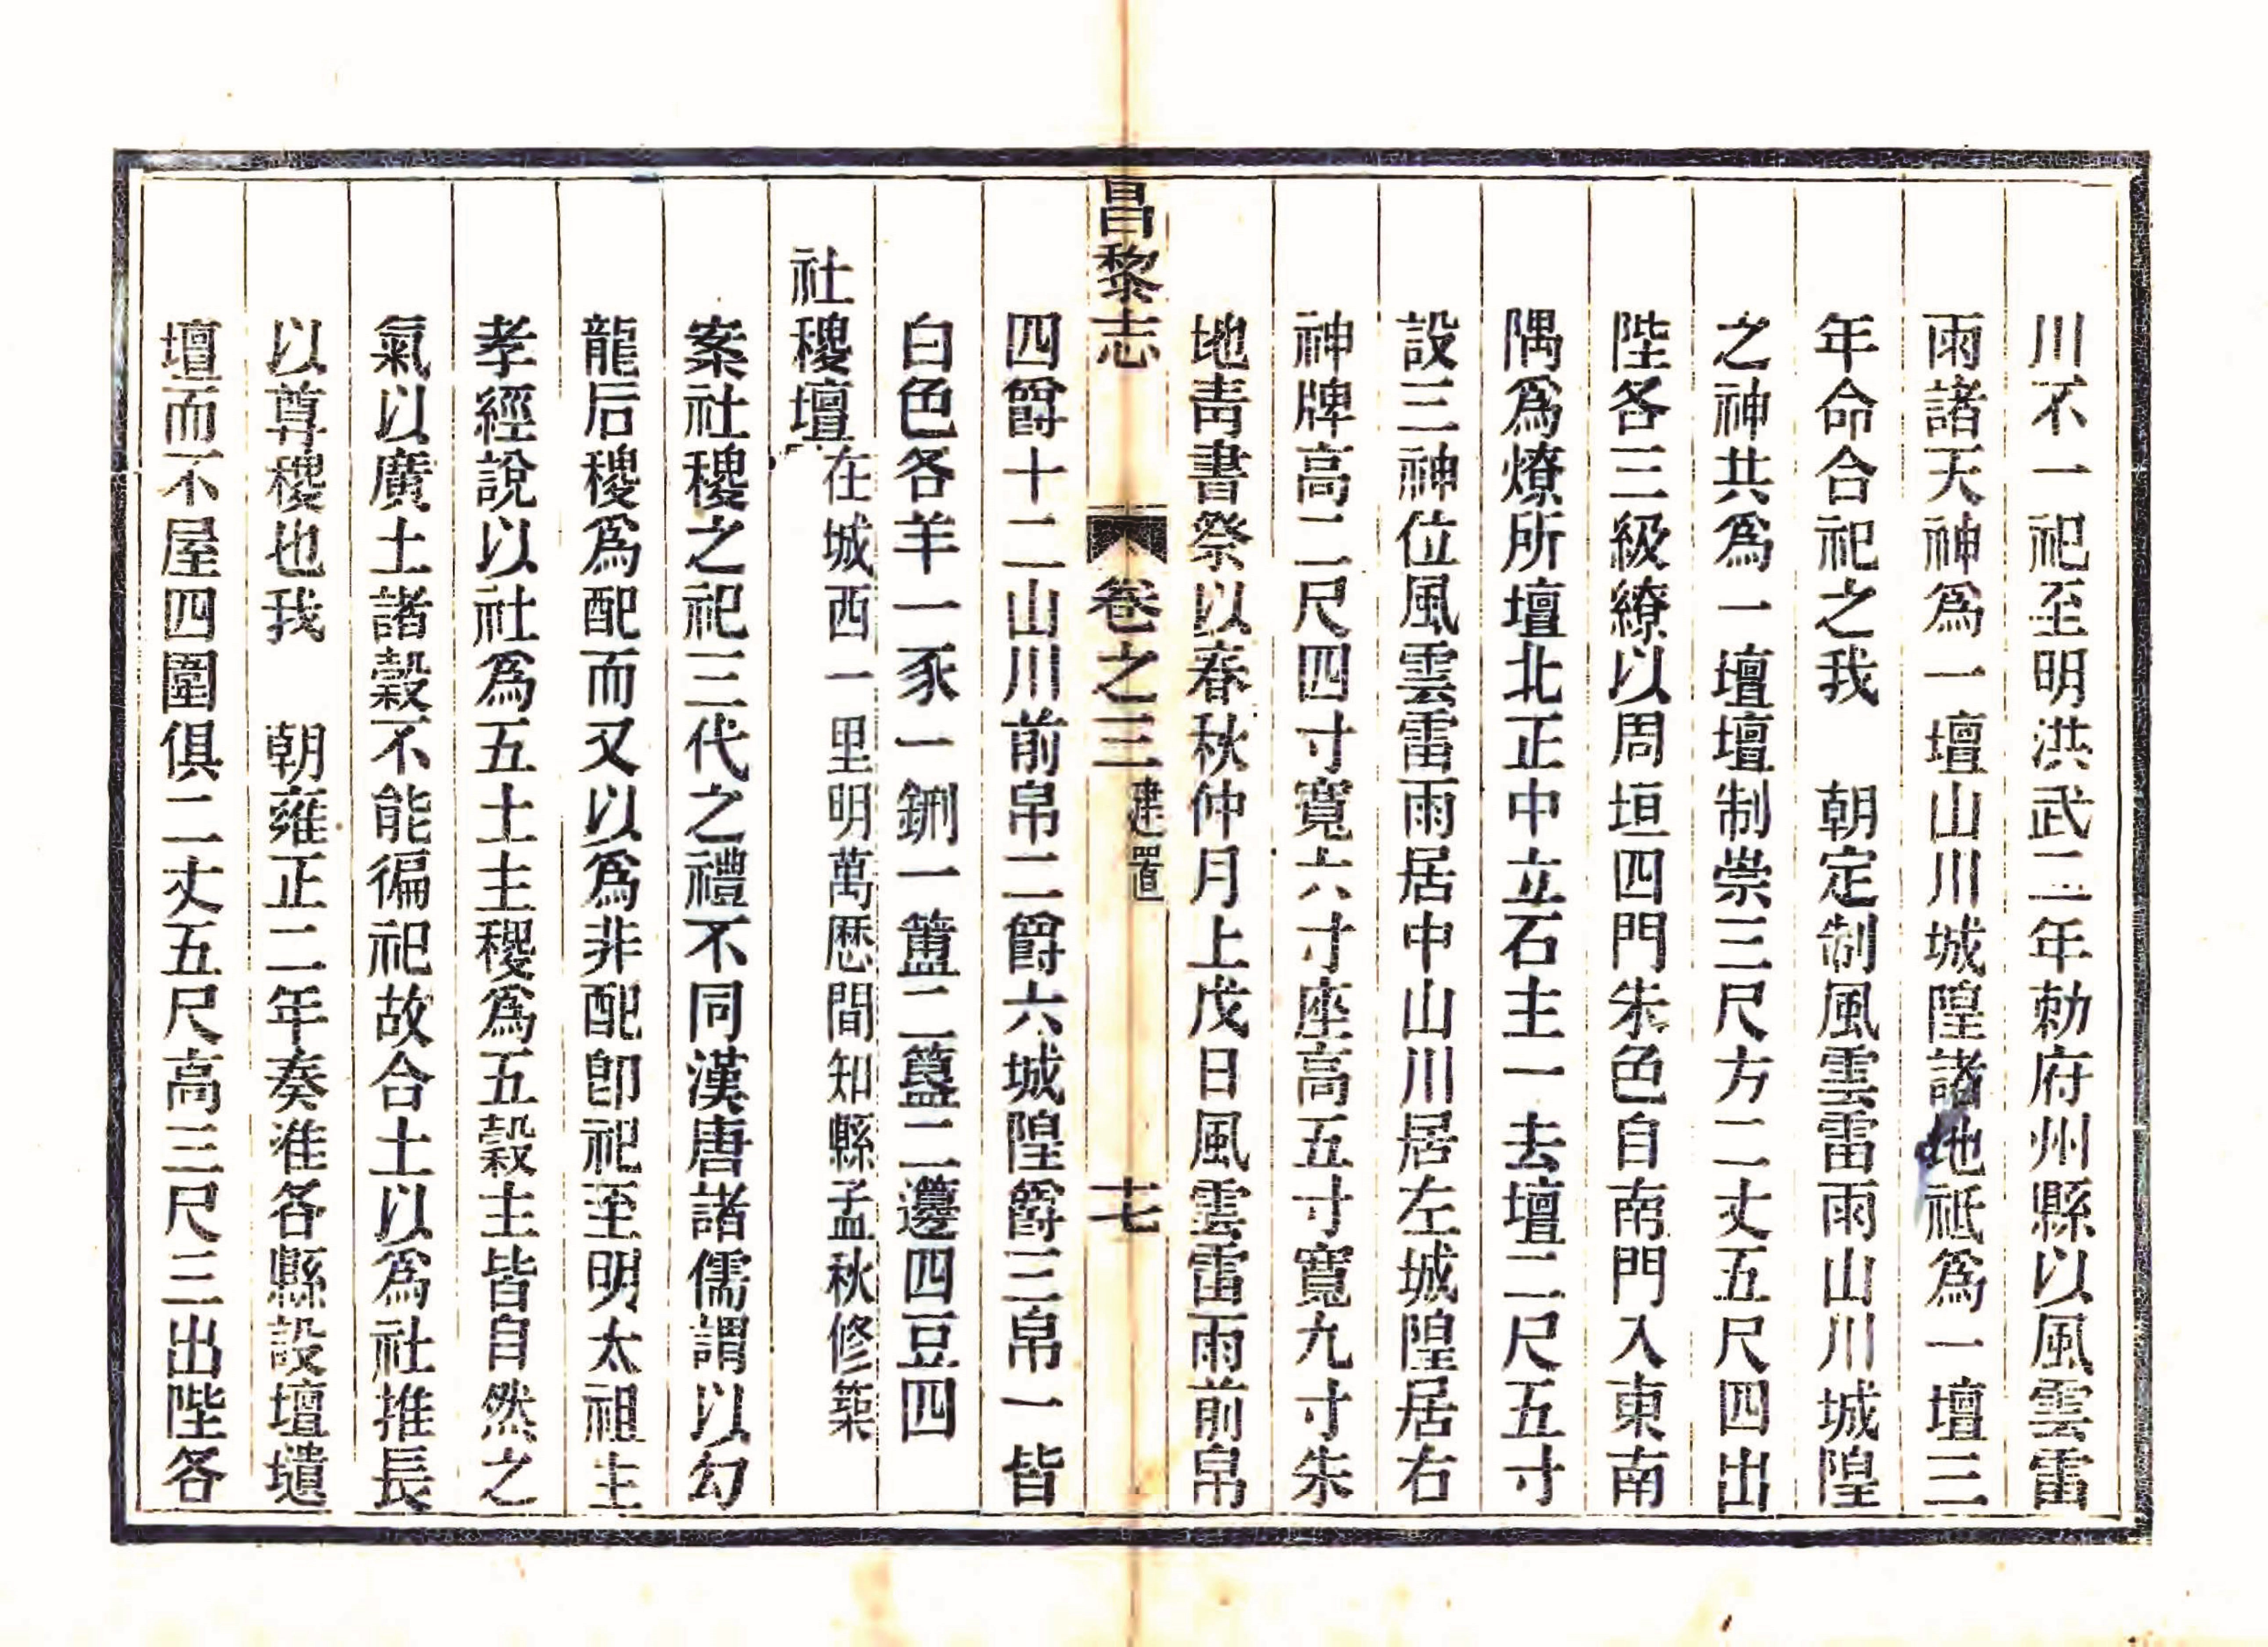 川不一祀至明洪武二年勅府州縣以風雲雷
雨諸天神爲一壇山川城隍諸地祇爲一壇三
年命合祀之我　朝定制風雲雷雨山川城隍
之神共爲一壇壇制崇三尺方二丈五尺四出
陛各三級繚以周垣四門朱色自南門入東南
隅爲燎所壇北正中立石主一去壇二尺五寸
設三神位風雲雷雨居中山川居左城隍居右
神牌高二尺四寸寬六寸座高五寸寬九寸朱
地靑書祭以春秋仲月上戊日風雲雷雨前帛
昌黎志　卷之三　建置　十七
四爵十二山川前帛二爵六城隍爵三帛一皆
白色各羊一豕一鉶一簠二簋二籩四豆四
社稷壇在城西一里明萬歷間知縣孟秋修築
案社稷之祀三代之禮不同漢唐諸儒謂以勾
龍后稷爲配而又以爲非配卽祀至明太祖主
孝經說以社爲五土主稷爲五穀主皆自然之
氣以廣土諸穀不能徧祀故合土以爲社推長
以尊稷也我　朝雍正二年奏准各縣設壇壝
壇而不屋四圍俱二丈五尺高三尺三出陛各